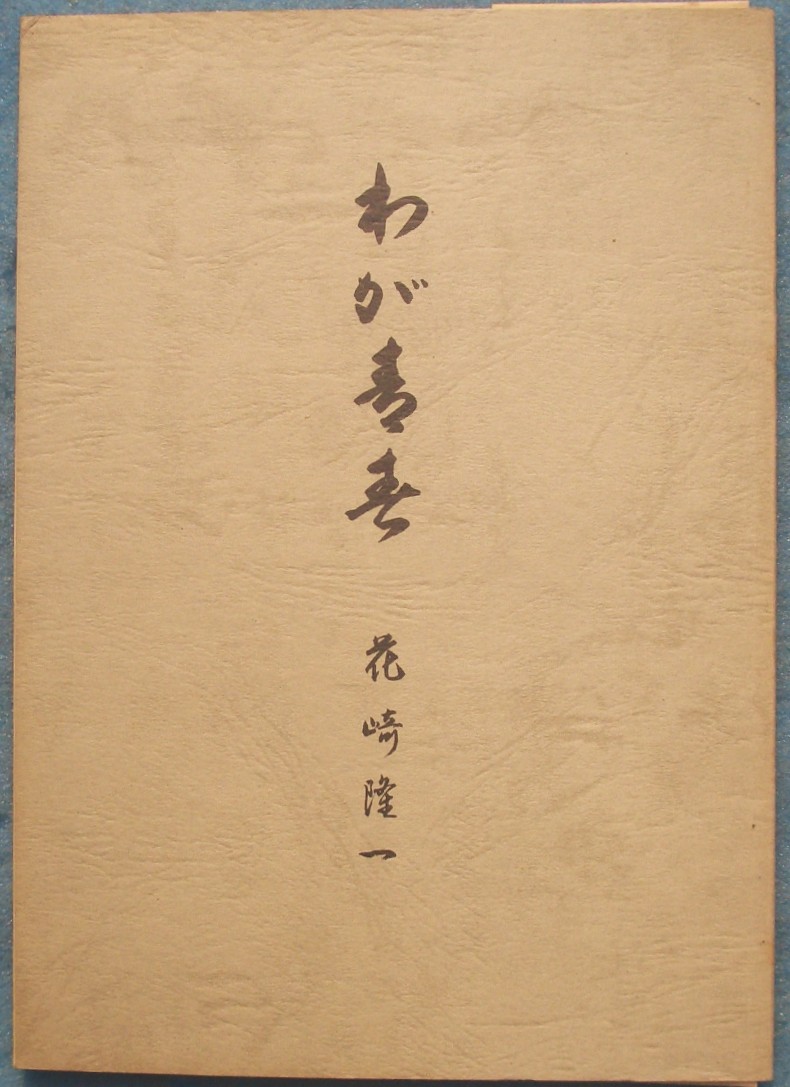 わが青春
花崎隆一